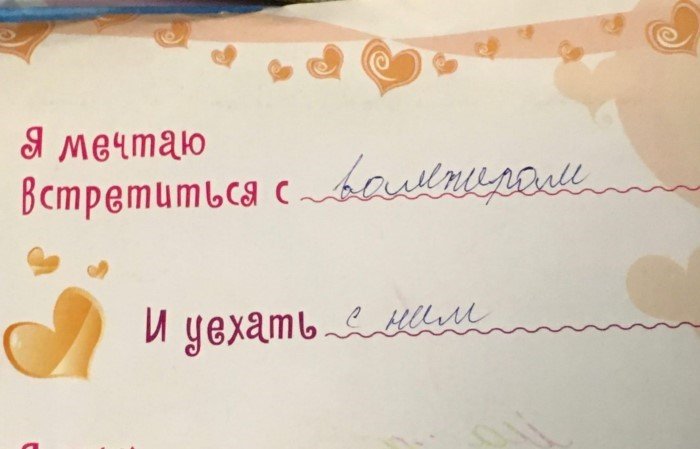 Я мечтаю
Встретиться с вампиром
И уехать с ним